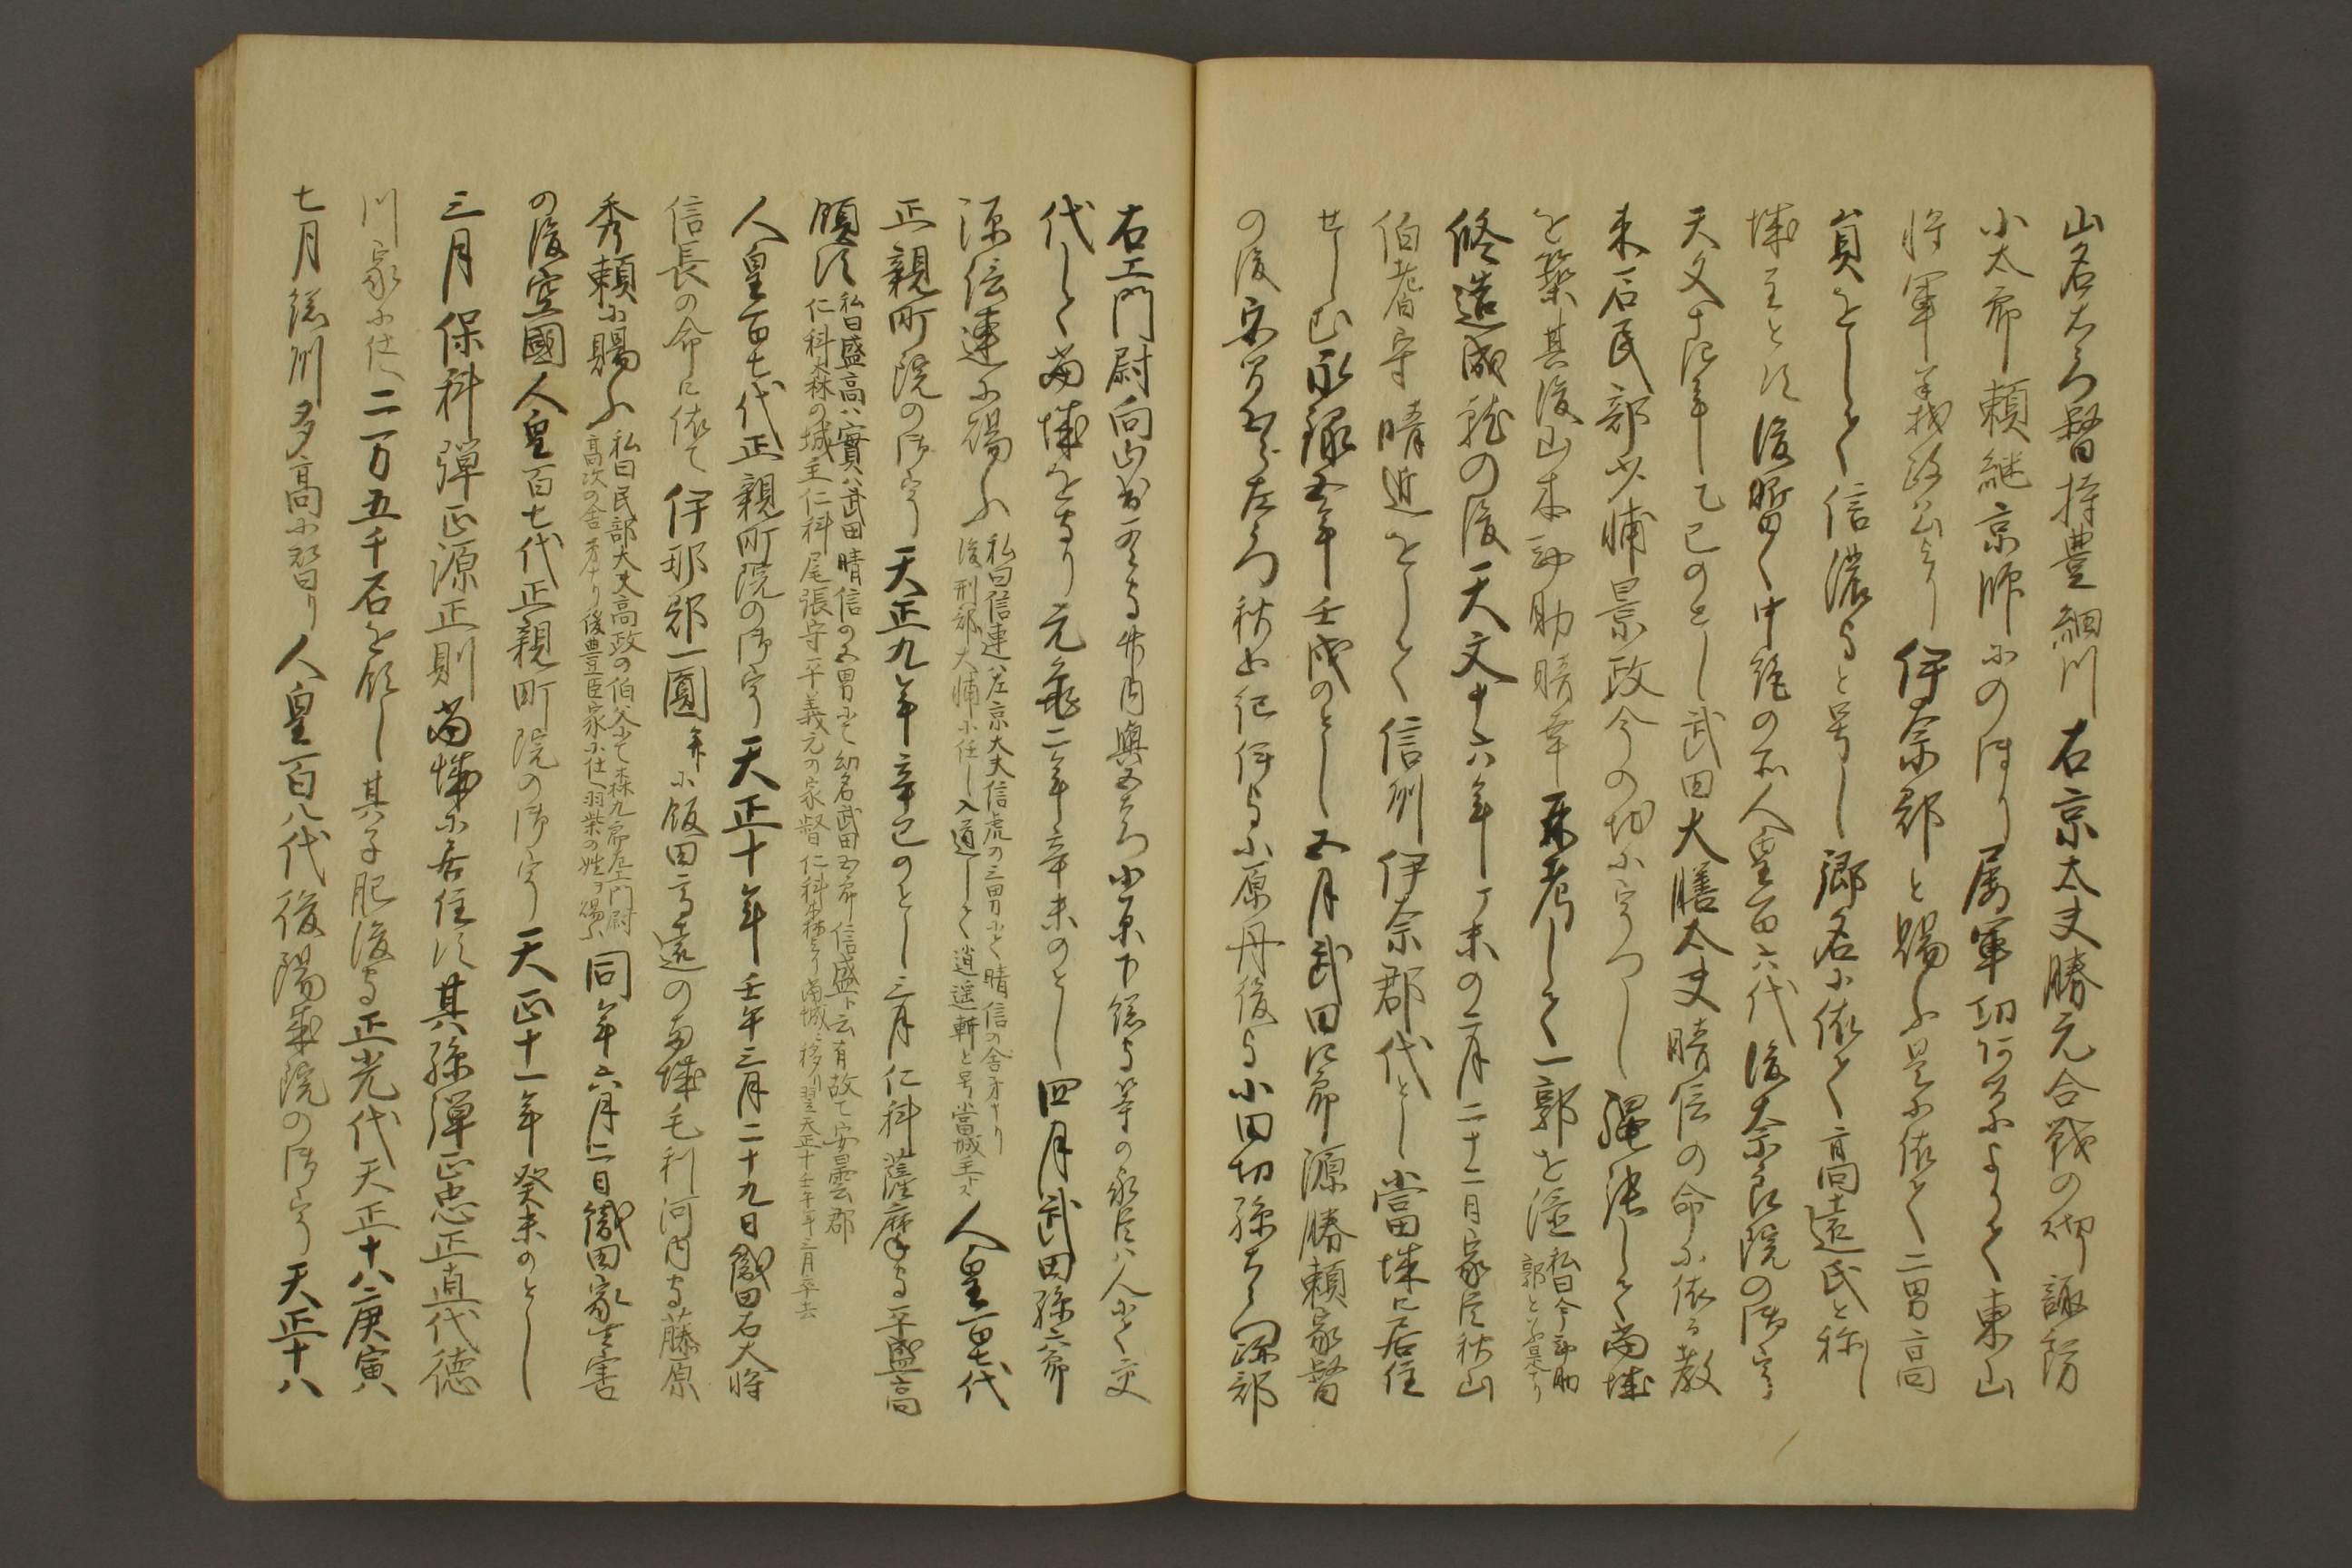 山名右エ門督持豊細川右京太夫勝元合戦の砌諏訪
小太郎頼継京師にのほり属軍功何分によりて東山
将軍義政公より伊奈郡を賜ふ是に依て二男高
貞をして信濃守と号し郷名に依て高遠氏と称し
城主とす後暫く中絶の所人皇百六代後奈良院の御宇
天文十四年乙巳のとし武田大膳太夫晴信の命に依る教
来石民部少輔景政今の切にうつし縄張して当城
を築其後山本勘助晴幸再考して一郭を塗 私曰今勘助
郭と云是なり
修造成就の後天文十六年丁未の二月二十二月家臣秋山
伯耆守晴近をして信州伊奈郡代とし当城に居住
せしむ永禄五年壬戌のとし五月武田四郎源勝頼家督
の後 左エ門秋山紀伊守小原丹後守小田切孫右エ門跡部
右エ門尉向山 守竹内與五右エ門小原下総守等の家臣八人にて交
代して当城を守り元亀二年辛未のとし四月武田孫六郎
源信連に賜ふ 私曰信連ハ左京大夫信虎の三男にて晴信の舎弟ナリ
後刑部大輔に任し入道して逍遥軒と号當城主トス 人皇百七代
正親町院の御宇天正九年辛巳のとし三月仁科薩摩守平盛高
領す 私曰盛高ハ實ハ武田晴信の五男にて幼名武田五郎信盛ト云有故て安曇郡
仁科森の城主仁科尾張守平義元の家督仁科森より當城に移り翌天正十壬午年三月卒去
人皇百七代正親町院の御宇天正十年壬午三月二十九日織田右大将
信長の命に依て伊那郡一圓并に飯田高遠の両城毛利河内守藤原
秀頼に賜ふ 私曰民部大夫高政の伯父にて森九郎左エ門尉
高次の舎弟ナリ後豊臣家に仕へ羽柴の姓ヲ賜ふ 同年六月二日織田家生害
の後空國人皇百七代正親町院の御宇天正十一年癸未のとし
三月保科弾正源正則当城に居住す其孫弾正忠正直代徳
川家に仕へ二万五千石を領し其子肥後守正光代天正十八庚寅
七月総州多高に替り人皇百八代後陽成院の御宇天正十八